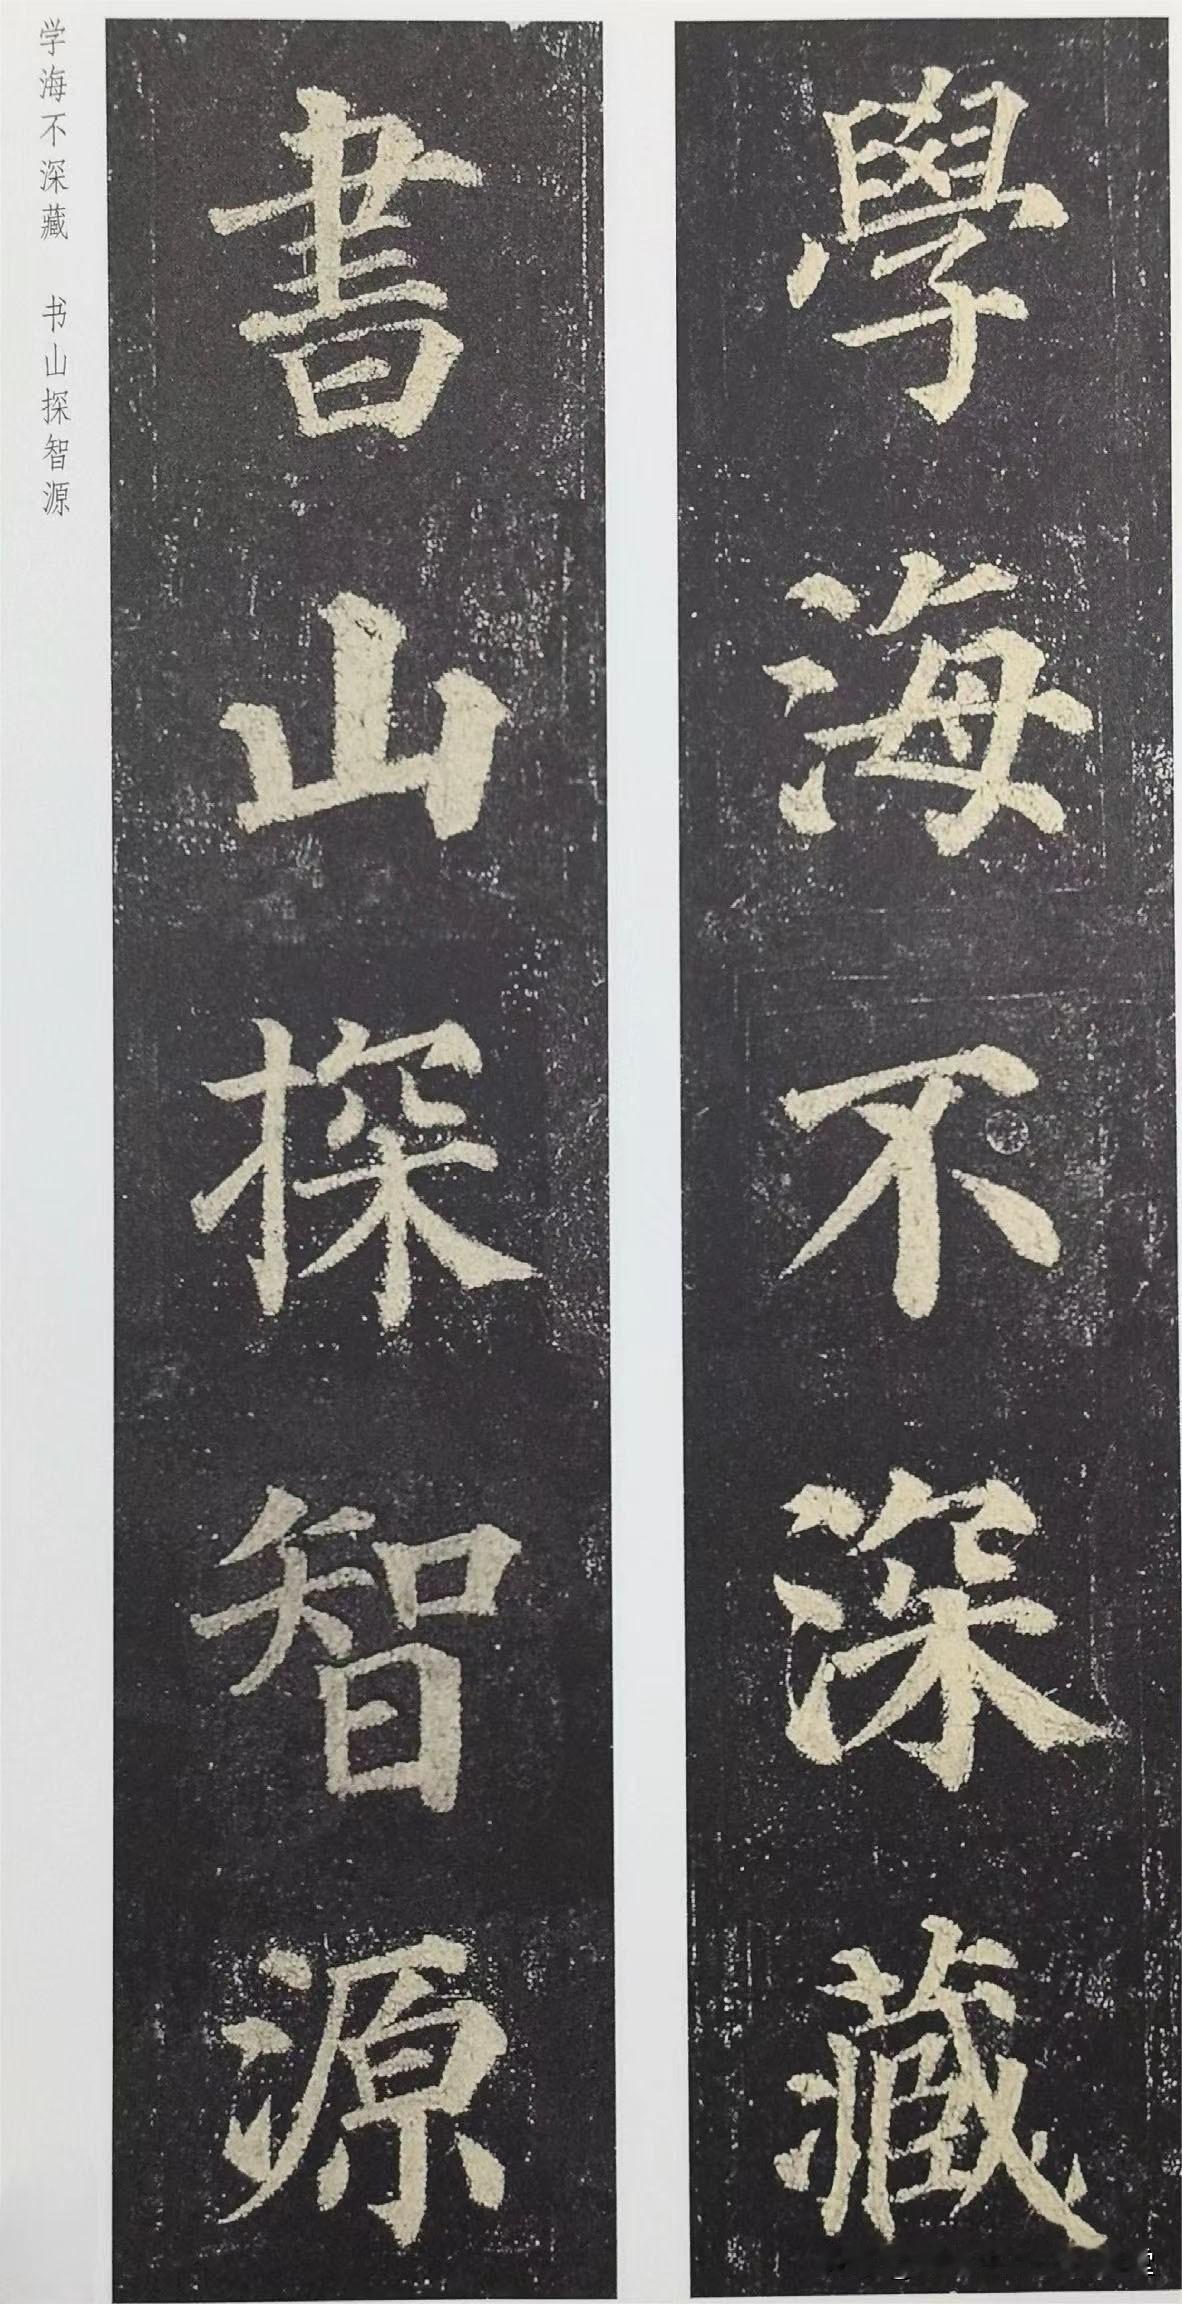 學海不深藏
書山探智源
学海不深藏 书山探智源